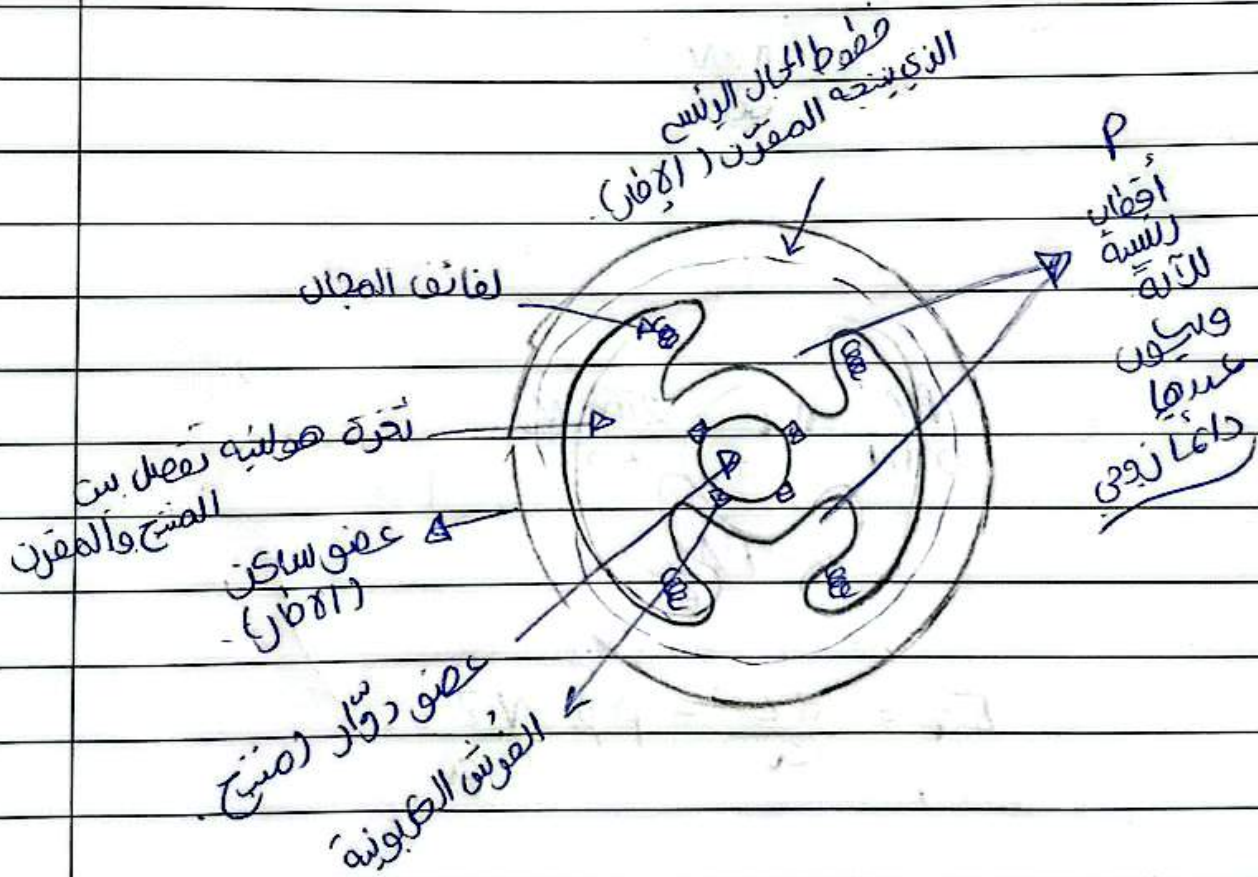 خطوط المجال الرئيسي
الذي ينتجه المقرّن (الإطار).
P
أقطاب
رئيسية
للآلة
ويكون
عددها
دائماً زوجي
لفائف المجال
ثغرة هوائية تفصل بين
المنتج والمقرن
عضو ساكن
(الاطار).
عضو دوّار (منتج).
الفرش الكربونية